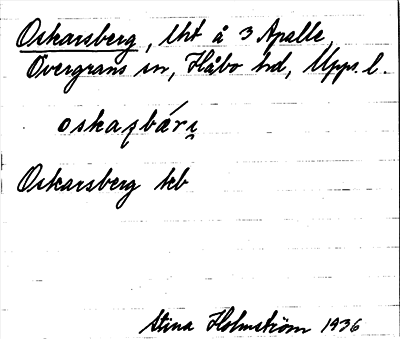 Oskarsberg, lht å 3 Apalle,
Övergrans sn, Håbo hd, Upps. l.
oskaʂbárɩ
Oskarsberg kb
Stina Holmström 1936